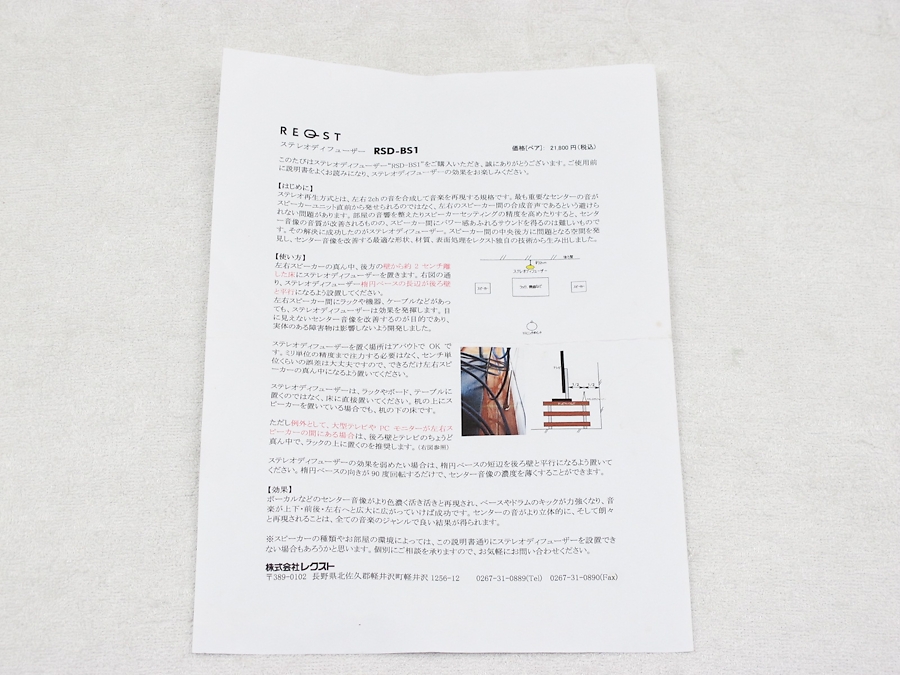 REQST
ステレオディフューザー RSD-BS1 価格[ペア] 21,800円(税込)
このたびはステレオディフューザー"RSD-BS1"をご購入いただき、誠にありがとうございます。ご使用前
に説明書をよくお読みになり、ステレオディフューザーの効果をお楽しみください。
【はじめに】
ステレオ再生方式とは、左右2chの音を合成して音楽を再現する規格です。最も重要なセンターの音が
スピーカーユニット直前から発せられるのではなく、左右のスピーカー間の合成音声であるという避けら
れない問題があります。部屋の音響を整えたりスピーカーセッティングの精度を高めたりすると、センタ
ー音像の音質が改善されるものの、スピーカー間にパワー感あふれるサウンドを得るのは難しいもので
す。その解決に成功したのがステレオディフューザー。スピーカー間の中央後方に問題となる空間を発
見し、センター音像を改善する最適な形状、材質、表面処理をレクスト独自の技術から生み出しました。
【使い方】
左右スピーカーの真ん中、後方の壁から約2センチ離
した床にステレオディフューザーを置きます。右図の通
り、ステレオディフューザー楕円ベースの長辺が後ろ壁
と平行になるよう設置してください。
左右スピーカー間にラックや機器、ケーブルなどがあっ
ても、ステレオディフューザーは効果を発揮します。目
に見えないセンター音像を改善するのが目的であり、
実体のある障害物は影響しないよう開発しました。
ステレオディフューザー
ステレオディフューザーを置く場所はアバウトでOKで
す。ミリ単位の精度まで注力する必要はなく、センチ単
位くらいの誤差は大丈夫ですので、できるだけ左右スピ
ーカーの真ん中になるよう置いてください。
ステレオディフューザーは、ラックやボード、テーブルに
置くのではなく、床に直接置いてください。机の上にス
ピーカーを置いている場合でも、机の下の床です。
ただし例外として、大型テレビやPCモニターが左右ス
ピーカーの間にある場合は、後ろ壁とテレビのちょうど
真ん中で、ラックの上に置くのを推奨します。(右図参照)
ステレオディフューザーの効果を弱めたい場合は、楕円ベースの短辺を後ろ壁と平行になるよう置いて
ください。楕円ベースの向きが90度回転するだけで、センター音像の濃度を薄くすることができます。
【効果】
ボーカルなどのセンター音像がより色濃く活き活きと再現され、ベースやドラムのキックが力強くなり、音
楽が上下・前後・左右へと広大に広がっていけば成功です。センターの音がより立体的に、そして朗々
と再現されることは、全ての音楽のジャンルで良い結果が得られます。
※スピーカーの種類やお部屋の環境によっては、この説明書通りにステレオディフューザーを設置でき
ない場合もあろうかと思います。個別にご相談を承りますので、お気軽にお問い合わせください。
株式会社レクスト
〒389-0102 長野県北佐久郡軽井沢町軽井沢1256-12 0267-31-0889(Tel) 0267-31-0890(Fax)